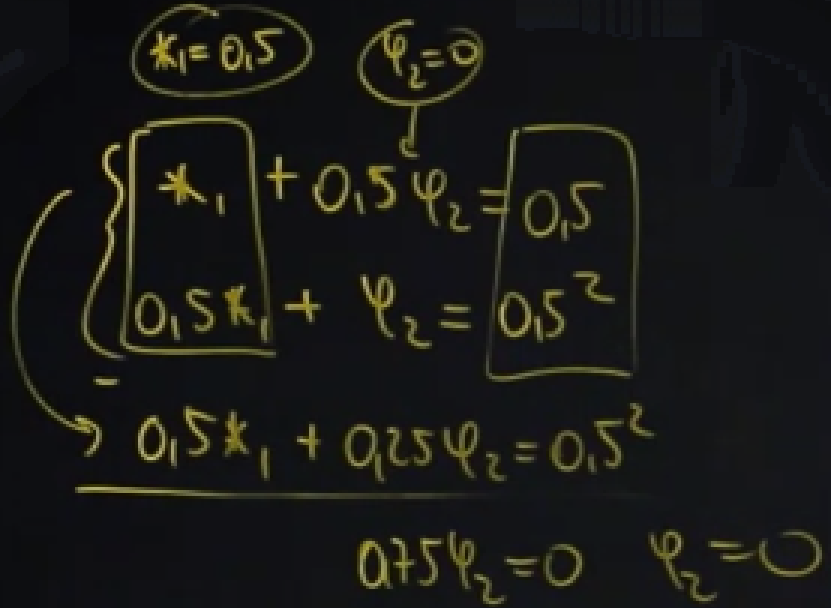 *₁=0,5 φ₂=0
*₁ + 0,5φ₂=0,5
0,5*₁ + φ₂=0,5²
-
0,5*₁ + 0,25φ₂=0,5²
0,75φ₂=0 φ₂=0